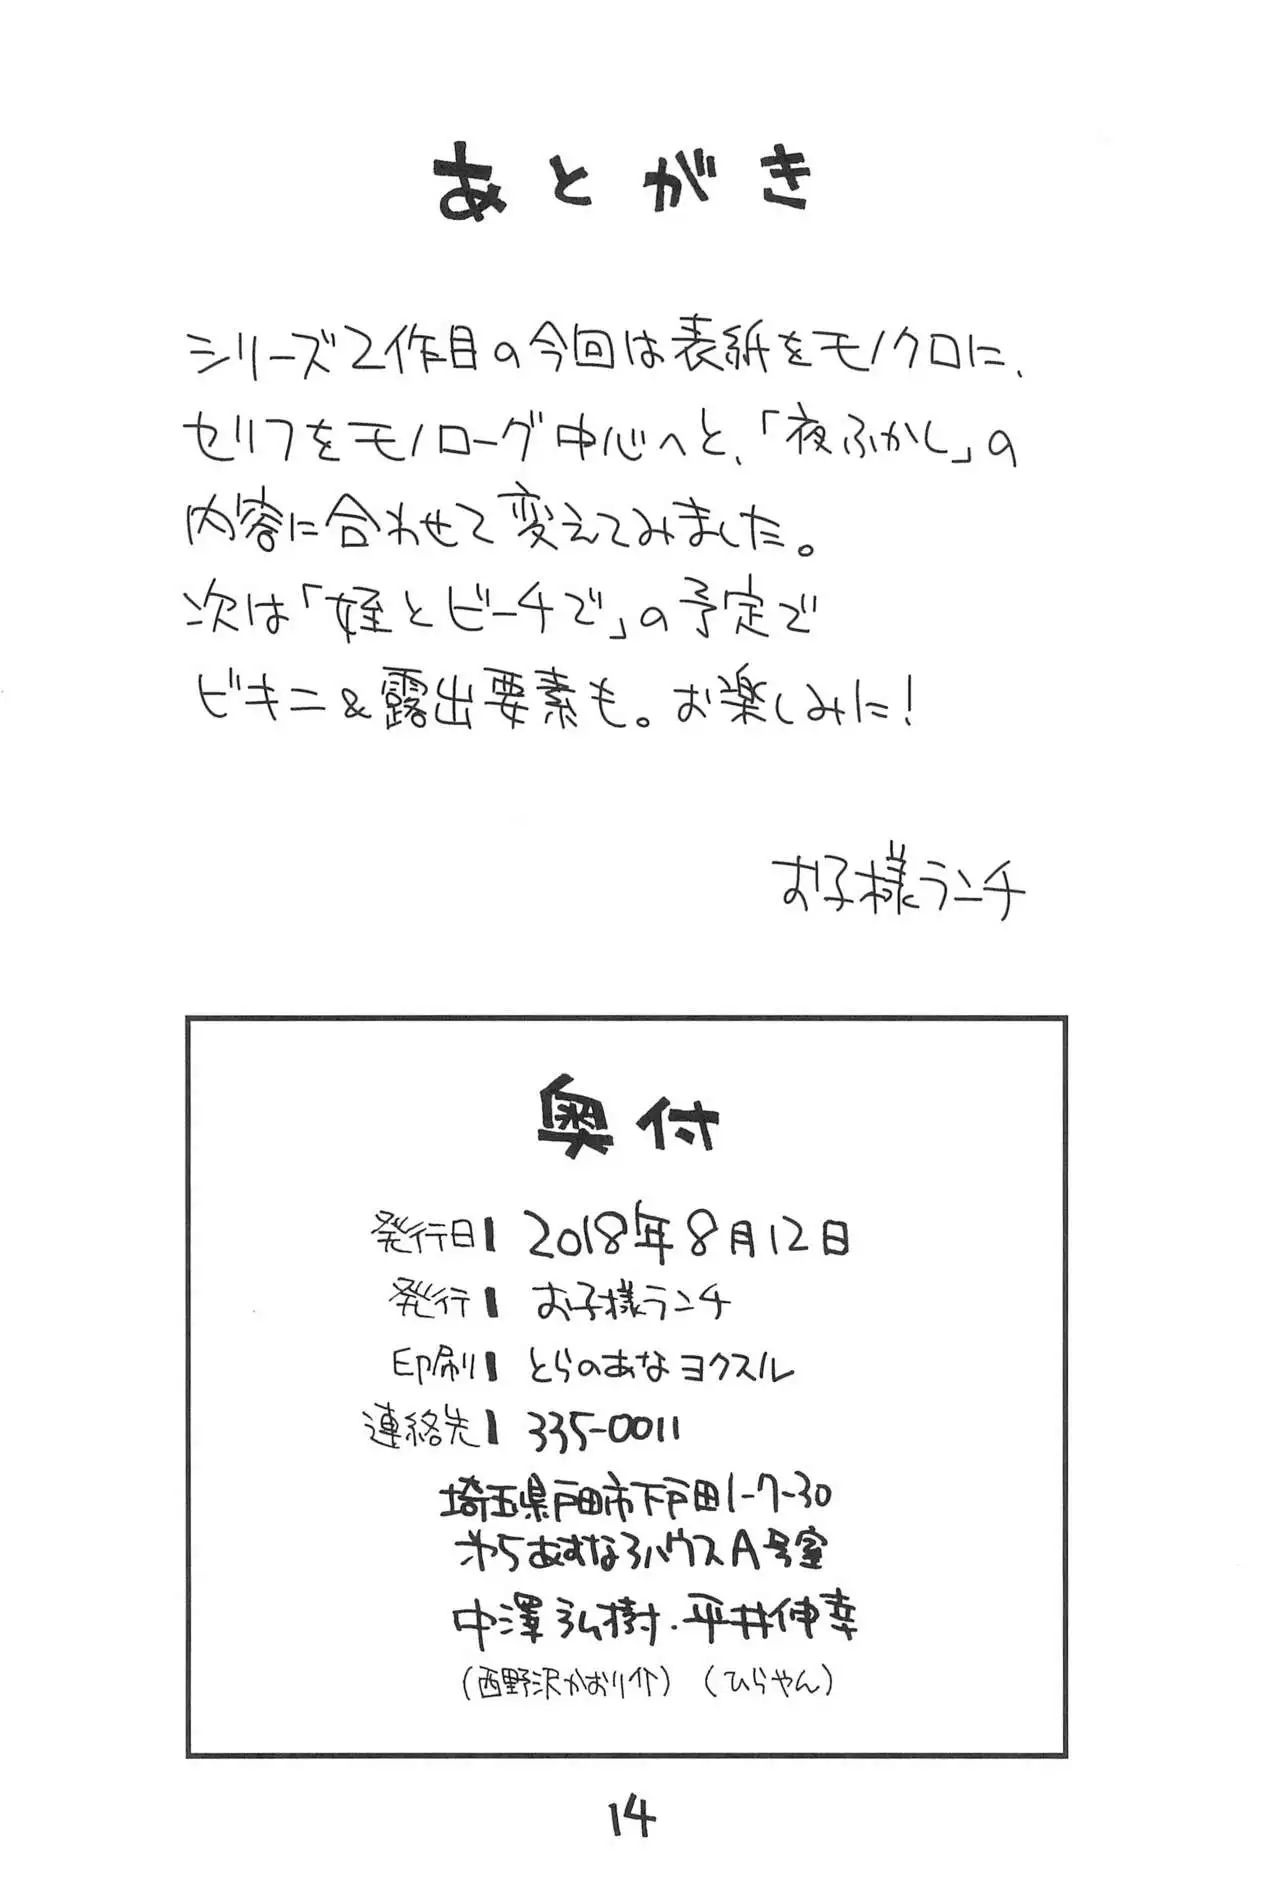 あとがき
シリーズ2作目の今回は表紙をモノクロに、
セリフをモノローグ中心へと、「夜ふかし」の
内容に合わせて変えてみました。
次は「姪とビーチで」の予定で
ビキニ&露出要素も。お楽しみに!
お子様ランチ
奥付
発行日 2018年8月12日
発行 お子様ランチ
印刷 とらのあなヨクスル
連絡先 335-0011
埼玉県戸田市下戸田1-7-30
第5あすなろハウスA号室
中澤弘樹.平井伸幸
(西野沢かおり介) (ひらやん)
14